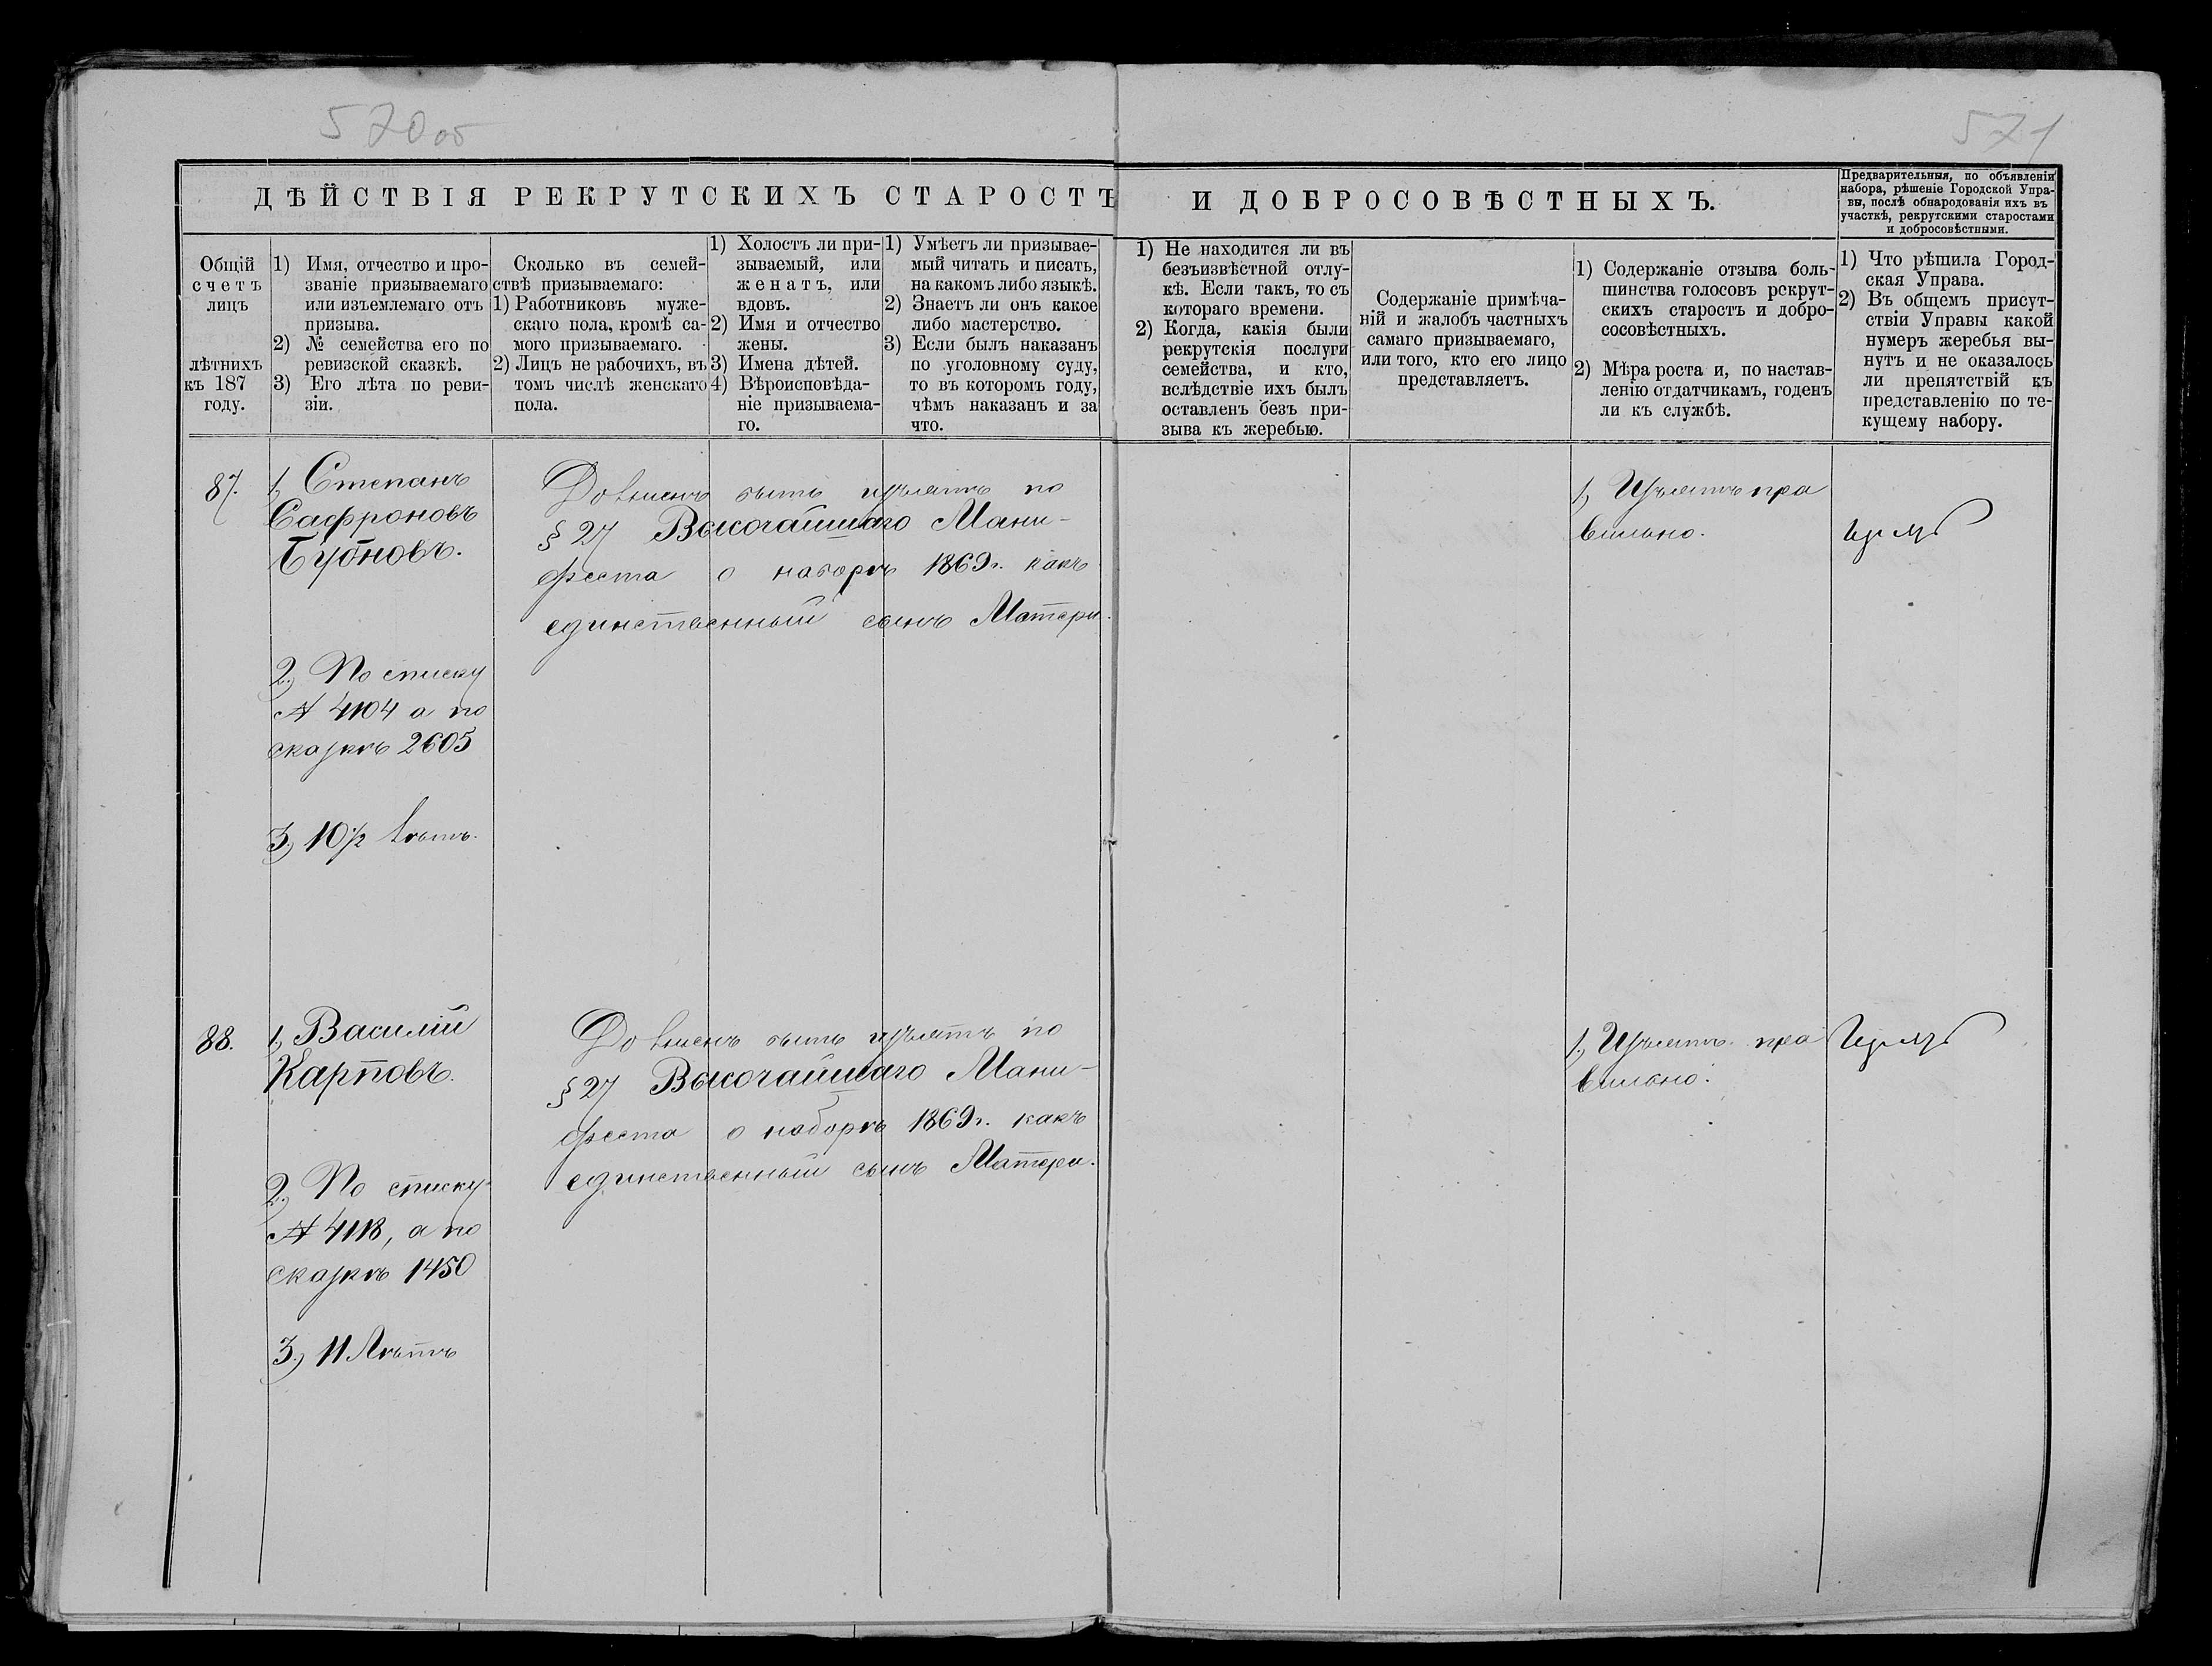 570об
571
ДѢЙСТВІЯ РЕКРУТСКИХЪ СТАРОСТЪ И ДОБРОСОВѢСТНЫХЪ.
Предварительныя, по объявленіи
набора, рѣшеніе Городской Упра-
вы, послѣ обнародованія ихъ въ
участкѣ, рекрутскими старостами
и добросовѣстными.
Общій
счетъ
лицъ
лѣтнихъ
къ 187
году.
1) Имя, отчество и про-
званіе призываемаго
или изъемлемаго отъ
призыва.
2) № семейства его по
ревизской сказкѣ.
3) Его лѣта по реви-
зіи.
Сколько въ семей-
ствѣ призываемаго:
1) Работниковъ муже-
скаго пола, кромѣ са-
мого призываемаго.
2) Лицъ не рабочихъ, въ
томъ числѣ женскаго
пола.
1) Холостъ ли при-
зываемый, или
женатъ, или
вдовъ.
2) Имя и отчество
жены.
3) Имена дѣтей.
4) Вѣроисповѣда-
ніе призываема-
го.
1) Умѣетъ ли призывае-
мый читать и писать,
на какомъ либо языкѣ.
2) Знаетъ ли онъ какое
либо мастерство.
3) Если былъ наказанъ
по уголовному суду,
то въ которомъ году,
чѣмъ наказанъ и за
что.
1) Не находится ли въ
безъизвѣстной отлу-
кѣ. Если такъ, то съ
котораго времени.
2) Когда, какія были
рекрутскія послуги
семейства, и кто,
вслѣдствіе ихъ былъ
оставленъ безъ при-
зыва къ жеребью.
Содержаніе примѣча-
ній и жалобъ частныхъ
самаго призываемаго,
или того, кто его лицо
представляетъ.
1) Содержаніе отзыва боль-
шинства голосовъ рекрут-
скихъ старостъ и добро-
сосовѣстныхъ.
2) Мѣра роста и, по настав-
ленію отдатчикамъ, годенъ
ли къ службѣ.
1) Что рѣшила Город-
ская Управа.
2) Въ общемъ присут-
ствіи Управы какой
нумеръ жеребья вы-
нутъ и не оказалось
ли препятствій къ
представленію по те-
кущему набору.
87.
1, Степанъ
Сафроновъ
Бубновъ.
2, По списку
№ 4104 а по
сказкѣ 2605
3, 10½ лѣтъ.
Долженъ быть изъятъ по
§ 27 Высочайшаго Мани-
феста о наборѣ 1869г. какъ
единственный сынъ Матери.
1, Изъятъ пра
вильно.
88.
1, Василій
Карповъ.
2, По списку
№ 4118, а по
сказкѣ 1450
3, 11 Лѣтъ
Долженъ быть изъятъ по
§ 27 Высочайшаго Мани-
феста о наборѣ 1869г. какъ
единственный сынъ Матери.
1, Изъятъ пра
вильно.